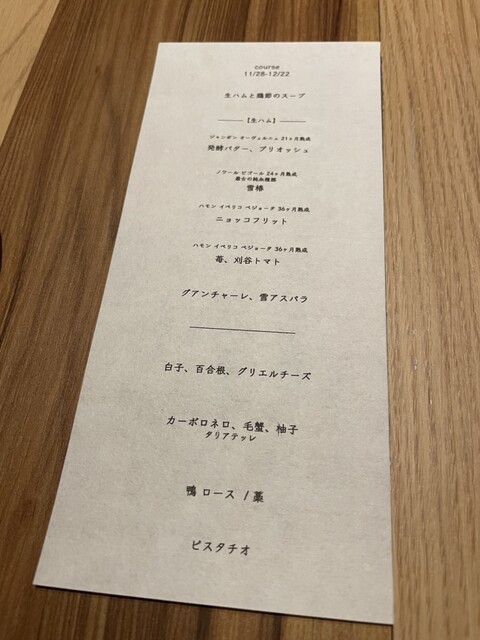 course
11/28-12/22
生ハムと鶏節のスープ
【生ハム】
ジャンボン オーヴェルニュ 21ヶ月熟成
発酵バター、ブリオッシュ
ノワール ビゴール 24ヶ月熟成
最古の純血種豚
雪椿
ハモン イベリコ ベジョータ 36ヶ月熟成
ニョッコフリット
ハモン イベリコ ベジョータ 36ヶ月熟成
苺、刈谷トマト
グアンチャーレ、雪アスパラ
白子、百合根、グリエルチーズ
カーボロネロ、毛蟹、柚子
タリアテッレ
鴨 ロース / 藁
ピスタチオ